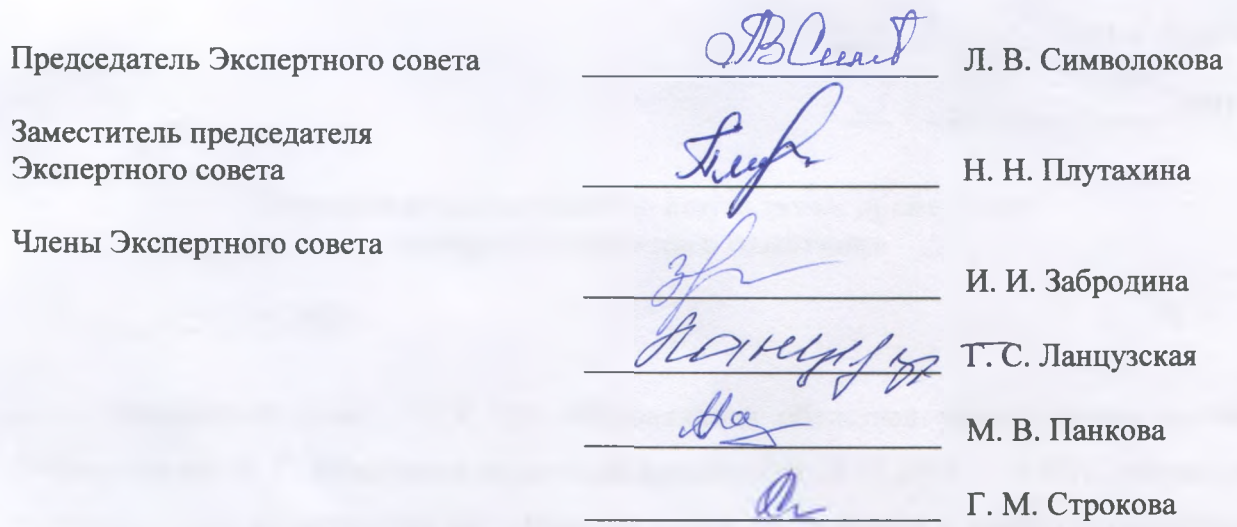 Председатель Экспертного совета Л. В. Символокова
Заместитель председателя
Экспертного совета Н. Н. Плутахина
Члены Экспертного совета
И. И. Забродина
Г. С. Ланцузская
М. В. Панкова
Г. М. Строкова